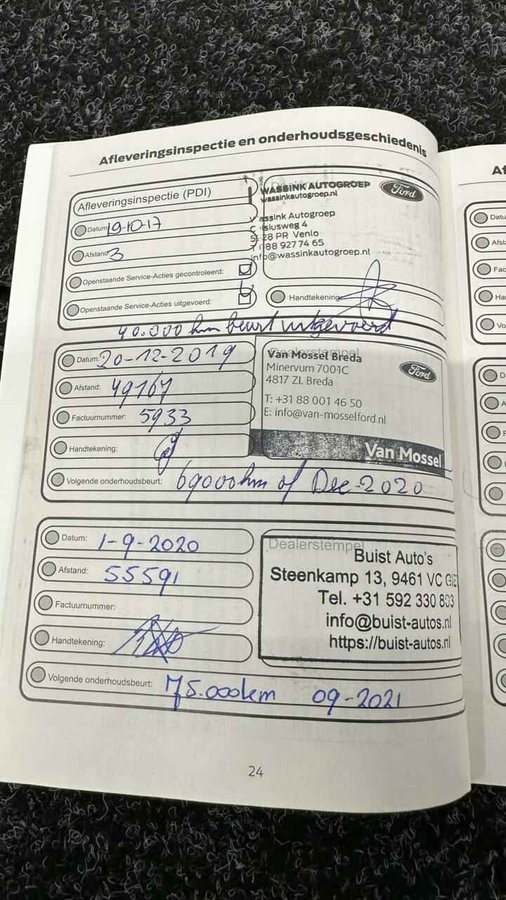 Afleveringsinspectie en onderhoudsgeschiedenis
Afleveringsinspectie (PDI)
Datum: 19-10-17
Afstand: 3
Openstaande Service-Acties gecontroleerd:
Openstaande Service-Acties uitgevoerd:
WASSINK AUTOGROEP
wassinkautogroep.nl
Ford
assink Autogroep
siusweg 4
28 PR Venlo
088 927 74 65
info@wassinkautogroep.nl
Handtekening:
40.000 km beurt uitgevoerd
Datum: 20-12-2019
Afstand: 49167
Factuurnummer: 5933
Handtekening:
Volgende onderhoudsbeurt: 69000km of Dec-2020
Van Mossel Breda
Minervum 7001C
4817 ZL Breda
T: +31 88 001 46 50
E: info@van-mosselford.nl
Ford
Van Mossel
Datum: 1-9-2020
Afstand: 55591
Factuurnummer:
Handtekening:
Volgende onderhoudsbeurt: 75.000km 09-2021
Dealerstempel
Buist Auto's
Steenkamp 13, 9461 VC GIE
Tel. +31 592 330 803
info@buist-autos.nl
https://buist-autos.nl
24